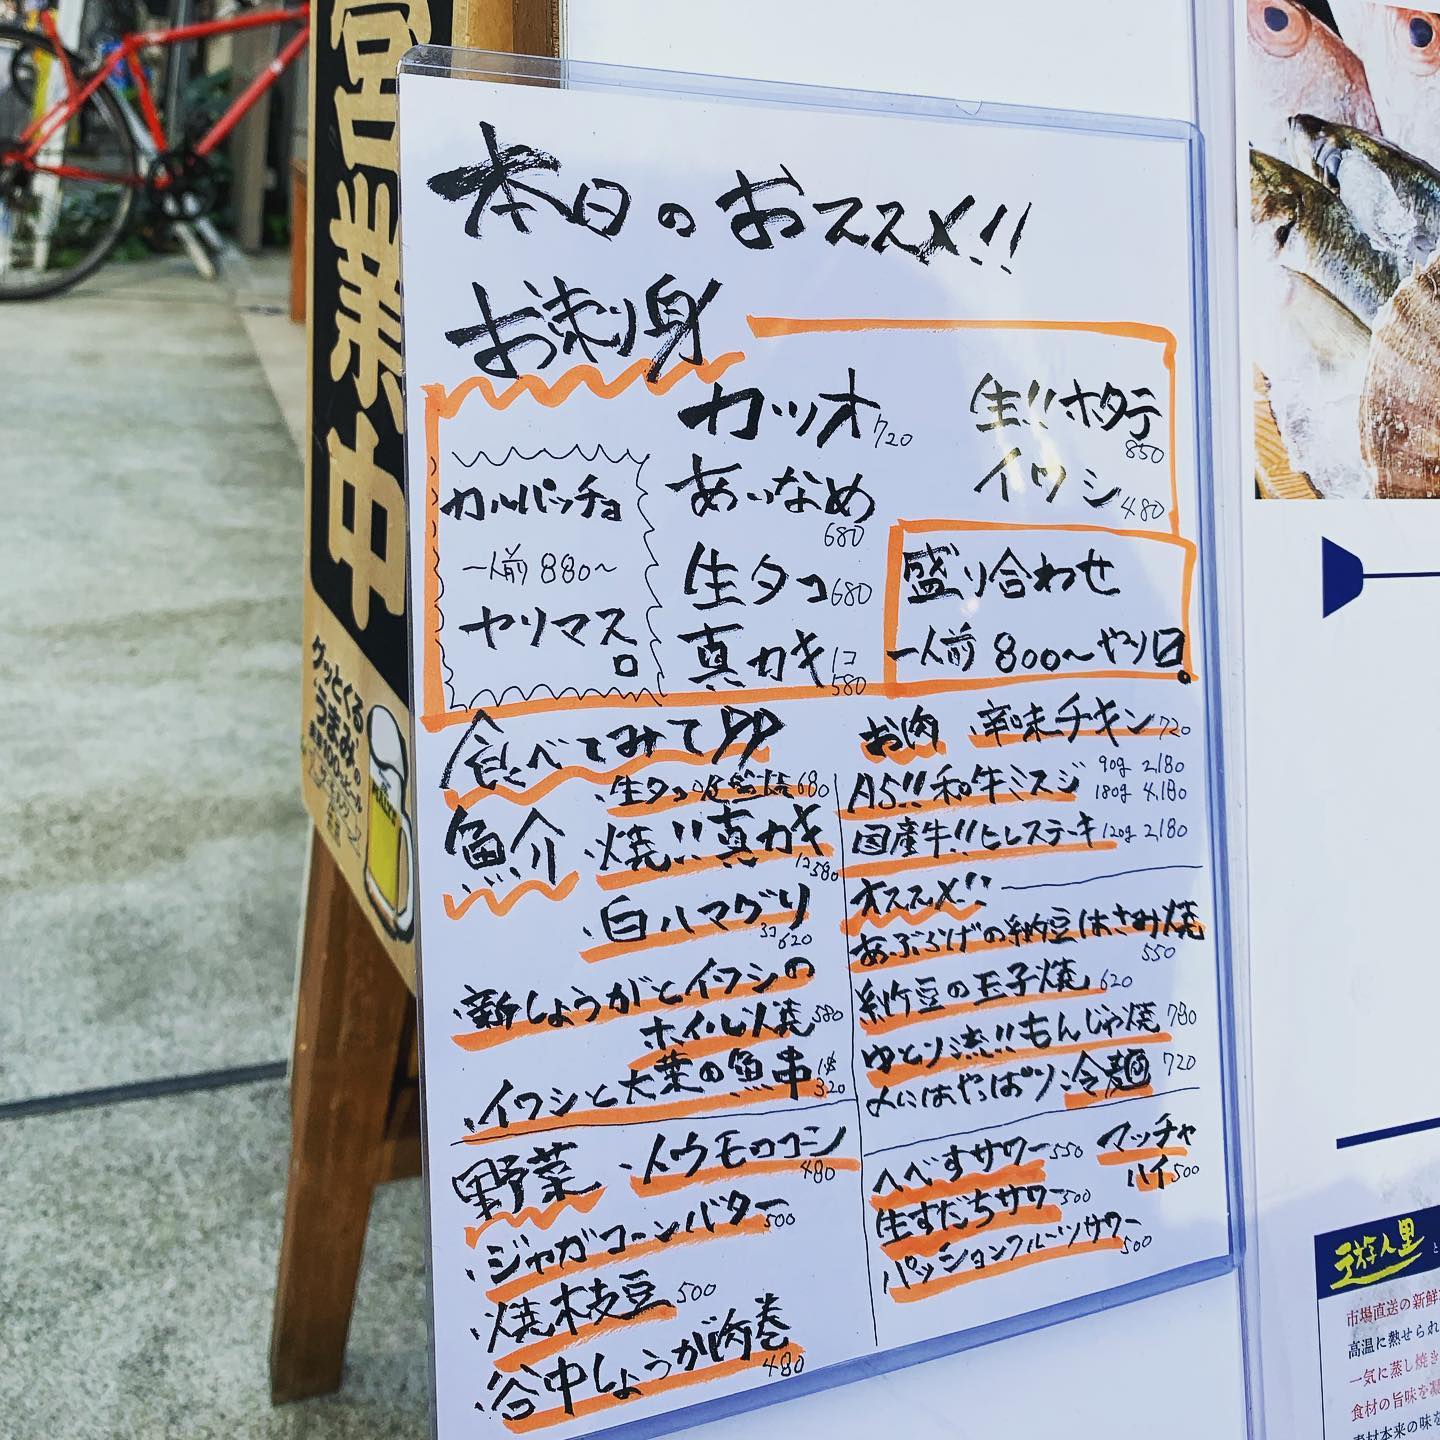 営業中
グッとくる
うまみの
本日のおススメ!!
お刺身
カツオ 720
生!!ホタテ 850
あいなめ 680
イワシ 480
カルパッチョ
一人前 880〜
ヤリマスロ
生タコ 680
真カキ 1コ 580
盛り合わせ
一人前 800〜やり口。
食べてみて
・生タコ 680
魚介
・焼!!真カキ 1コ 580
・白ハマグリ 3コ 620
・新しょうがとイワシの
ホイル焼 580
・イワシと大葉の魚串 1本 320
野菜
・トウモロコシ 480
・ジャガコーンバター 500
・焼枝豆 500
・谷中しょうが肉巻 480
お肉
辛味チキン 720
A5!!和牛ミスジ 90g 2,180
180g 4,180
国産牛!!ヒレステーキ 120g 2,180
オススメ!!
あぶらげの納豆はさみ焼 550
納豆の玉子焼 620
ゆとり流!!もんじゃ焼 780
〆にはやっぱり冷麺 720
へべすサワー 550
マッチャ
ハイ 500
生すだちサワー 500
パッションフルーツサワー 500
遊人里
市場直送の新鮮
高温に熱せられ
一気に蒸し焼き
食材の旨味を凝
素材本来の味を